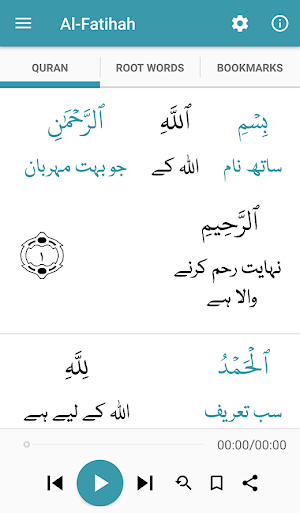 Al-Fatihah
QURAN ROOT WORDS BOOKMARKS
بِسْمِ ٱللَّهِ ٱلرَّحْمَٰنِ
ساتھ نام اللہ کے جو بہت مہربان
ٱلرَّحِيمِ
نہایت رحم کرنے
والا ہے
١
ٱلْحَمْدُ لِلَّهِ
سب تعریف اللہ کے لیے ہے
00:00/00:00